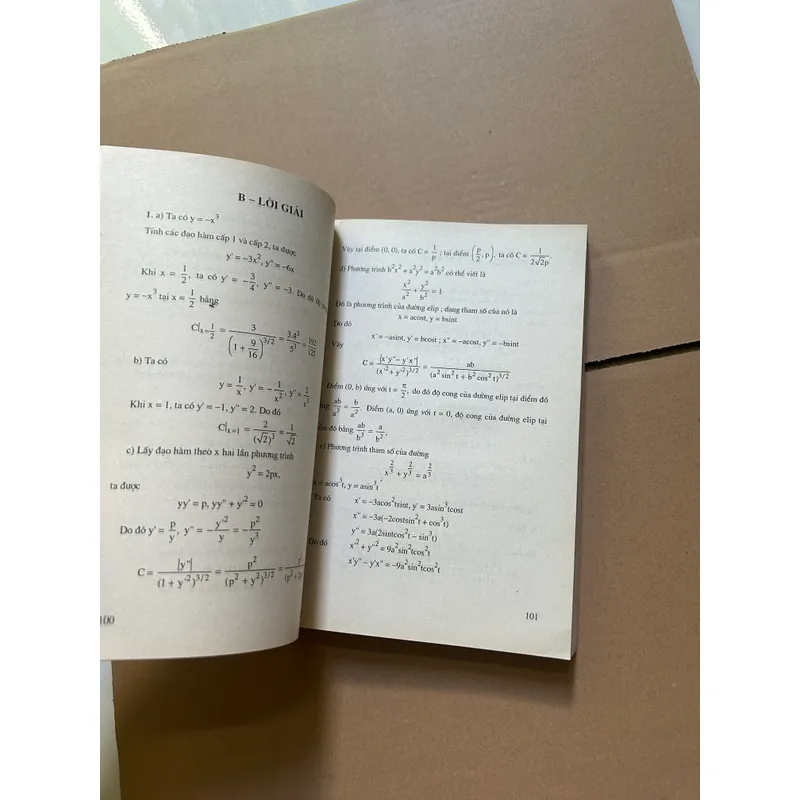 B – LỜI GIẢI
1. a) Ta có y = –x³
Tính các đạo hàm cấp 1 và cấp 2, ta được
y' = –3x², y'' = –6x
Khi x = 1/2, ta có y' = –3/4, y'' = –3. Do đó
y = –x³ tại x = 1/2 bằng
C|x=1/2 = 3/(1 + 9/16)^3/2 = 3.4³/5³ = 192/125
b) Ta có
y = 1/x, y' = –1/x², y'' = 2/x³
Khi x = 1, ta có y' = –1, y'' = 2. Do đó
C|x=1 = 2/(√2)³ = 1/√2.
c) Lấy đạo hàm theo x hai lần phương trình
y² = 2px,
ta được
yy' = p, yy'' + y'² = 0
Do đó y' = p/y, y'' = –y'²/y = –p²/y³
C = |y''|/(1 + y'²)^3/2 = p²/(p² + y²)^3/2 =
100
Vậy tại điểm (0, 0), ta có C = 1/p ; tại điểm (p/2, p), ta có C = 1/2√2p.
d) Phương trình b²x² + a²y² = a²b² có thể viết là
x²/a² + y²/b² = 1
Đó là phương trình của đường elip ; dạng tham số của nó là
x = acost, y = bsint
Do đó
x' = –asint, y' = bcost ; x'' = –acost, y'' = –bsint
Vậy
C = |x'y'' – y'x''|/(x'² + y'²)^3/2 = ab/(a² sin² t + b² cos² t)^3/2
Điểm (0, b) ứng với t = π/2, do đó độ cong của đường elip tại điểm đó
ab/a³ = b/a². Điểm (a, 0) ứng với t = 0, độ cong của đường elip tại
đó bằng ab/b³ = a/b².
e) Phương trình tham số của đường
x^2/3 + y^2/3 = a^2/3
x = acos³t, y = asin³t
Ta có x' = –3acos²tsint, y' = 3asin²tcost
x'' = –3a(–2costsin²t + cos³t)
y'' = 3a(2sintcos²t – sin³t)
Do đó x'² + y'² = 9a²sin²tcos²t
x'y'' – y'x'' = –9a²sin²tcos²t
101